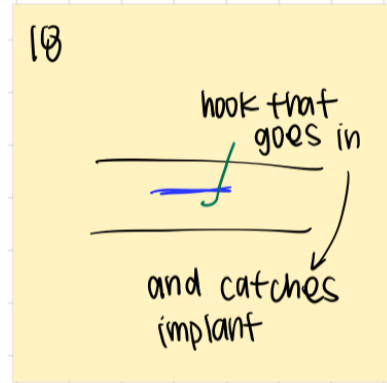 18
hook that
goes in
and catches
implant